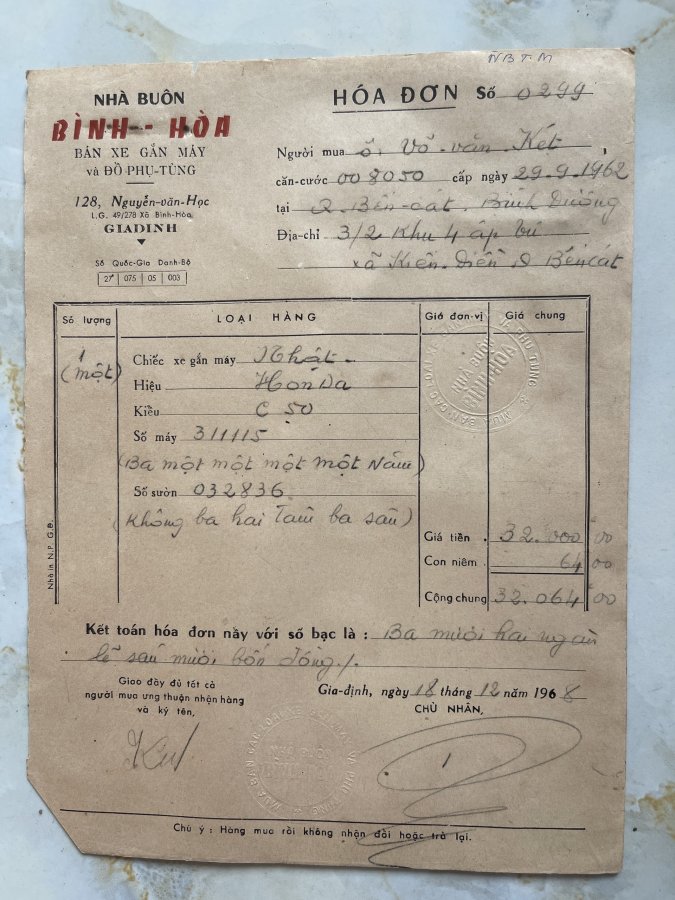 NBTM
NHÀ BUÔN
BÌNH-HÒA
BÁN XE GẮN MÁY
và ĐỒ PHỤ-TÙNG
128, Nguyễn-văn-Học
L.G. 49/278 Xã Bình-Hòa
GIADINH
Số Quốc-Gia Danh-Bộ
27 075 05 003
HÓA ĐƠN Số 0299
Người mua ô. Võ-văn Kết,
căn-cước 008050 cấp ngày 29.9.1962
tại Q. Bến-cát, Bình Dương
Địa-chỉ 3/2 Khu 4 ấp
xã Kiến Điền Q Bến Cát
Số lượng LOẠI HÀNG Giá đơn-vị Giá chung
1 (một)
Chiếc xe gắn máy Nhật
Hiệu HonDa
Kiểu C 50
Số máy 311115
(Ba một một một một Năm)
Số sườn 032836
(Không ba hai Tám ba sáu)
Giá tiền 32.000 00
Con niêm 64 00
Cộng chung 32.064 00
Nhà in N.P. G.Đ.
Kết toán hóa đơn này với số bạc là : Ba mươi hai ngàn
lẻ sáu mươi bốn đồng./.
Giao đầy đủ tốt cả
người mua ưng thuận nhận hàng
và ký tên,
Gia-định, ngày 18 tháng 12 năm 1968
CHỦ NHÂN,
NHÀ BUÔN
BÌNH HÒA
MUA BÁN CÁC LOẠI XE
PHỤ TÙNG
Chú ý : Hàng mua rồi không nhận đổi hoặc trả lại.